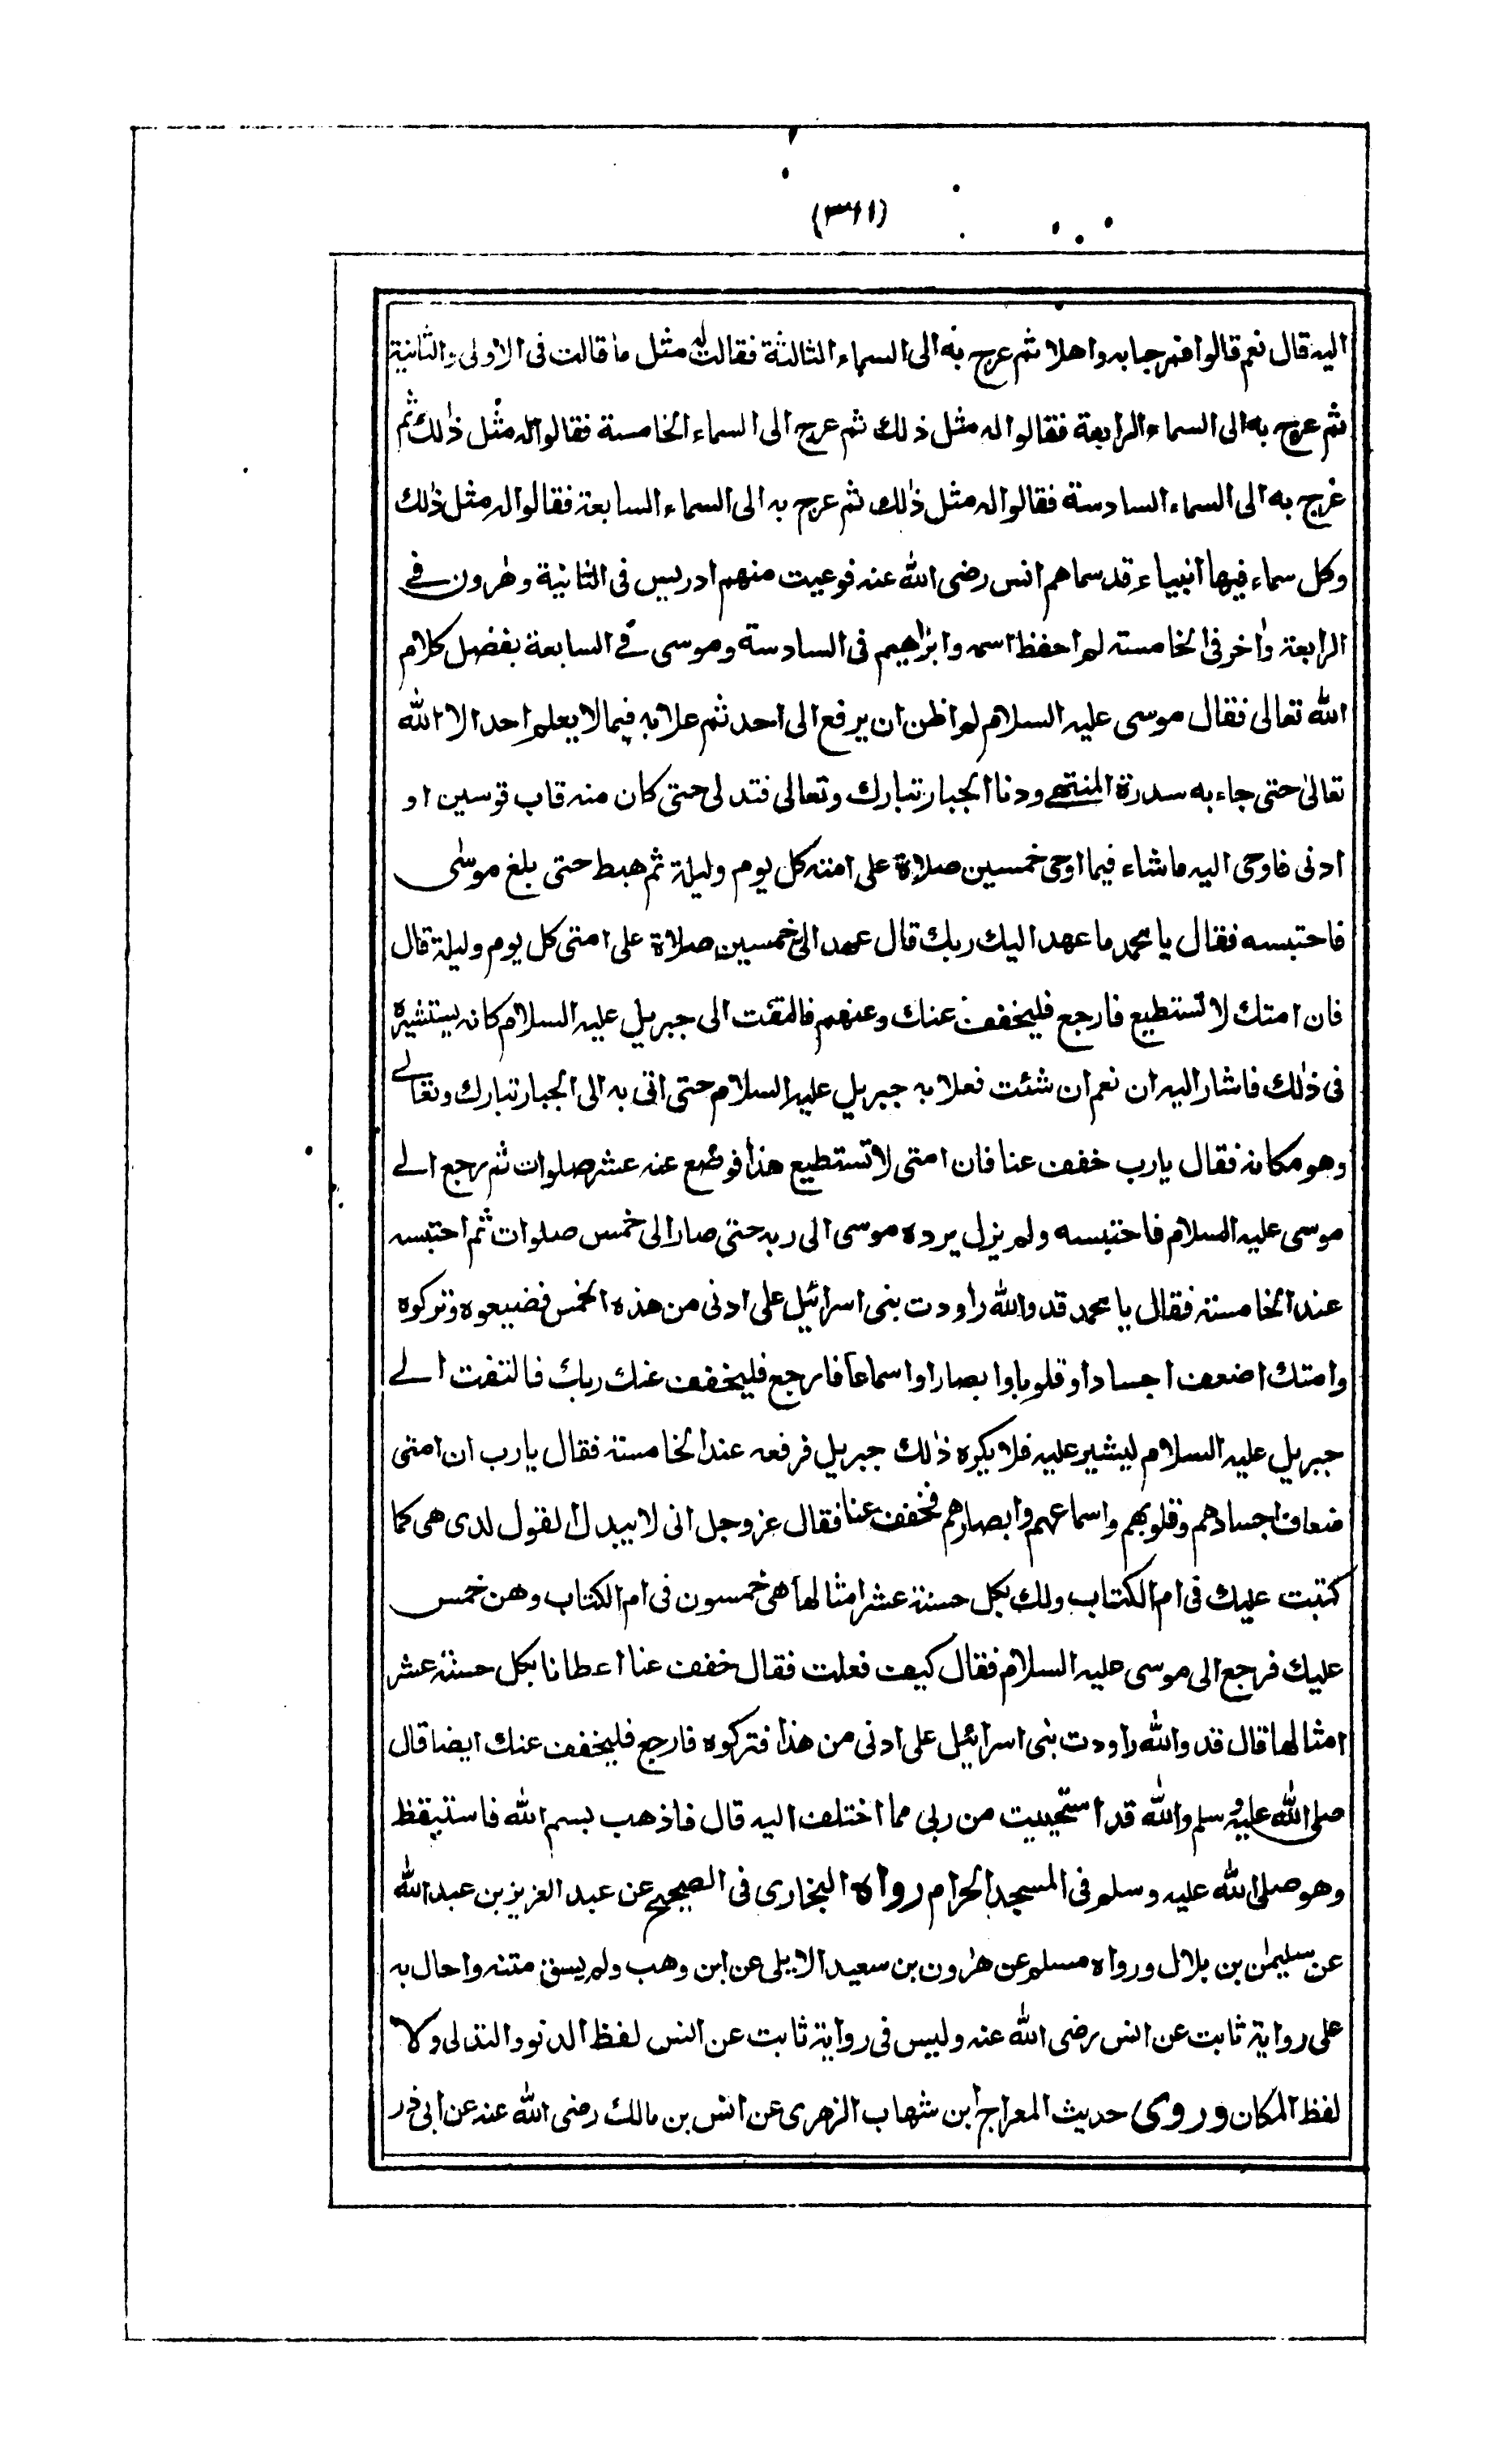 (٣١١)
اليه قال نعم قالوا فمرحبا به واهلا ثم عرج به الى السماء الثالثة فقالت له مثل ما قالت فى الاولى والثانية
ثم عرج به الى السماء الرابعة فقالوا له مثل ذلك ثم عرج الى السماء الخامسة فقالوا له مثل ذٰلك ثم
عرج به الى السماء السادسة فقالوا له مثل ذٰلك ثم عرج به الى السماء السابعة فقالوا له مثل ذٰلك
وكل سماء فيها انبياء قد سماهم انس رضى الله عنه فوعيت منهم ادريس فى الثانية وهٰرون فے
الرابعة واٰخر فى الخامسة لم احفظ اسمه وابرٰاهيم فى السادسة وموسى فے السابعة بفضل كلام
الله تعالى فقال موسى عليه السلام لم اظن ان يرفع الى احد ثم علا به فيما لا يعلم احد الا الله
تعالىٰ حتى جاء به سدرة المنتهے ودنا الجبار تبارك وتعالى فتدلى حتى كان منه قاب قوسين او
ادنى فاوحى اليه ما شاء فيما اوحى خمسين صلاة على امته كل يوم وليلة ثم هبط حتى بلغ موسٰى
فاحتبسه فقال يا محمد ما عهد اليك ربك قال عهد الىّ خمسين صلاة على امتى كل يوم وليلة قال
فان امتك لا تستطيع فارجع فليخفف عنك وعنهم فالتفت الى جبريل عليه السلام كانه يستشيره
فى ذٰلك فاشار اليه ان نعم ان شئت فعلا به جبريل عليه السلام حتى اتى به الى الجبار تبارك وتعالے
وهو مكانه فقال يارب خفف عنا فان امتى لا تستطيع هذا فوضع عنه عشر صلوات ثم رجع الے
موسى عليه السلام فاحتبسه ولم يزل يرده موسى الى ربه حتى صار الى خمس صلوات ثم احتبسه
عند الخامسة فقال يا محمد قد والله راودت بنى اسرائيل على ادنى من هذه الخمس فضيعوه وتركوه
وامتك اضعف اجسادا وقلوبا وابصارا واسماعا فارجع فليخفف عنك ربك فالتفت الے
جبريل عليه السلام ليشير عليه فلا يكره ذٰلك جبريل فرفعه عند الخامسة فقال يارب ان امتى
ضعاف اجسادهم وقلوبهم واسماعهم وابصارهم فخفف عنا فقال عز وجل انى لا يبدل القول لدى هى كما
كتبت عليك فى ام الكتاب ولك بكل حسنة عشر امثالها هى خمسون فى ام الكتاب وهن خمس
عليك فرجع الى موسى عليه السلام فقال كيف فعلت فقال خفف عنا اعطانا بكل حسنة عشر
امثالها قال قد والله راودت بنى اسرائيل على ادنى من هذا فتركوه فارجع فليخفف عنك ايضا قال
صلى الله عليه وسلم والله قد استحييت من ربى مما اختلف اليه قال فاذهب بسم الله فاستيقظ
وهو صلى الله عليه وسلم فى المسجد الحرام رواه البخارى فى الصحيح عن عبد العزيز بن عبد الله
عن سليمٰن بن بلال ورواه مسلم عن هٰرون بن سعيد الايلى عن ابن وهب ولم يسق متنه واحال به
على رواية ثابت عن انس رضى الله عنه وليس فى رواية ثابت عن انس لفظ الدنو والتدلى ولا
لفظ المكان وروى حديث المعراج ابن شهاب الزهرى عن انس بن مالك رضى الله عنه عن ابى ذر